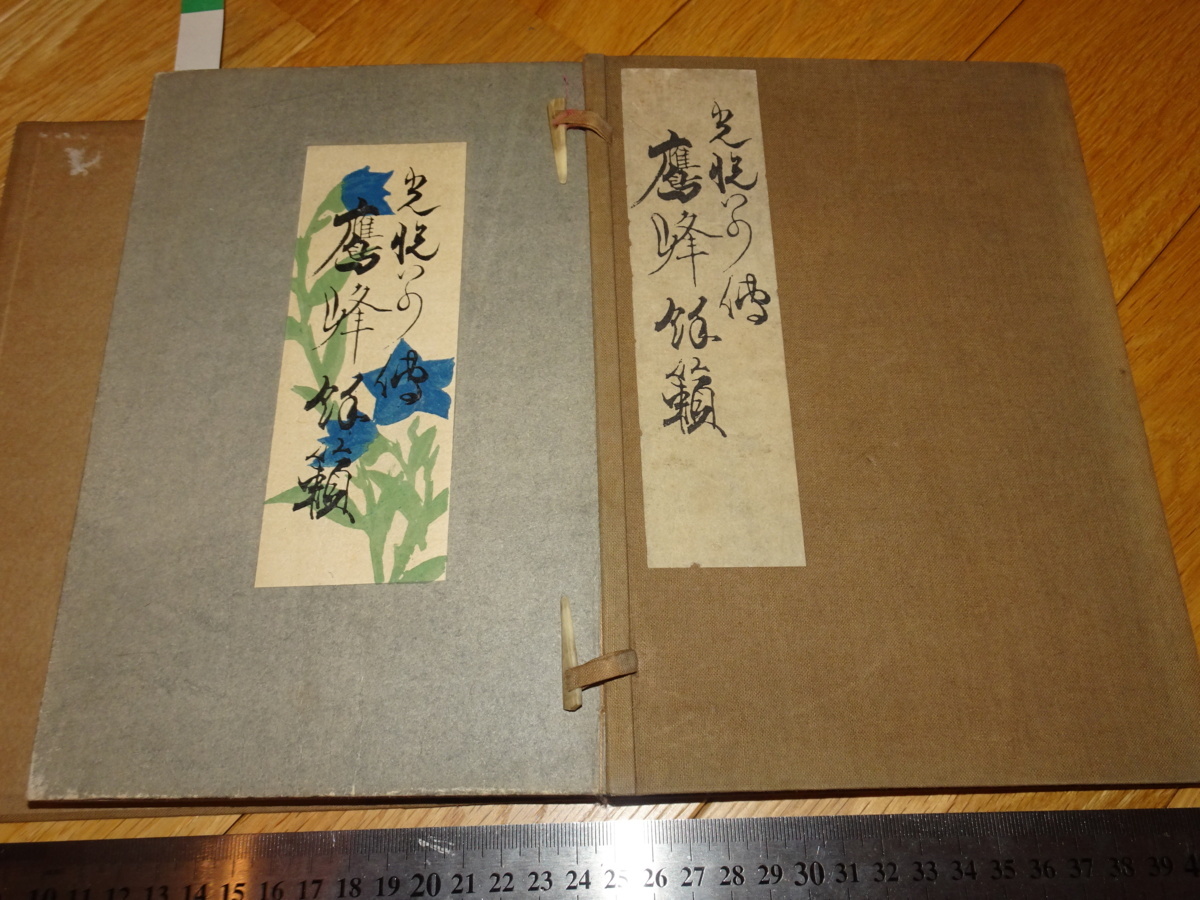 光悦いの傳
鷹峰餘籟
光悦いの傳
鷹峰餘籟
10 11 12 13 14 15 16 17 18 19 20 21 22 23 24 25 26 27 28 29 30 31 32 33 34 35 36 37 38 39